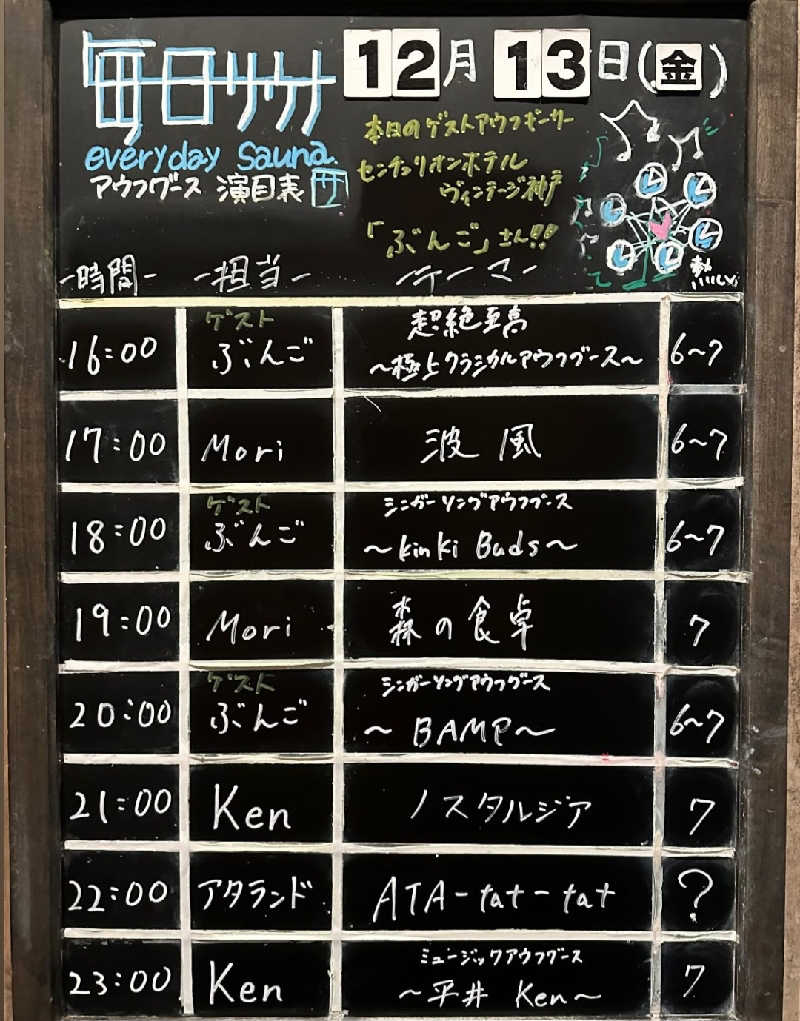 毎日サウナ
everyday sauna
アウフグース 演目表
12月13日(金)
本日のゲストアウフギーサー
センチュリオンホテル
ヴィンテージ神戸
「ぶんご」さん!!
-時間- -担当- -テーマ-
16:00 ゲスト ぶんご 超絶至高 6~7
~極上クラシカルアウフグース~
17:00 Mori 波風 6~7
18:00 ゲスト ぶんご シンガーソングアウフグース 6~7
~kinki Buds~
19:00 Mori 森の食卓 7
20:00 ゲスト ぶんご シンガーソングアウフグース 6~7
~BAMP~
21:00 Ken ノスタルジア 7
22:00 アタランド ATA-tat-tat ?
23:00 Ken ミュージックアウフグース 7
~平井 Ken~